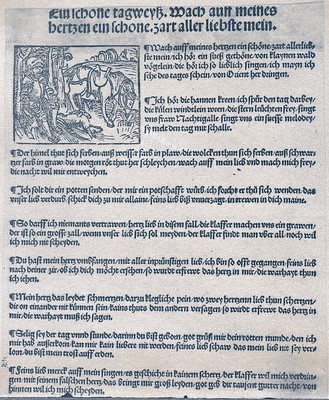 Ein schone tagweyß. Wach auff meines
hertzen ein schone. zart aller liebste mein.
¶Wach auff meines hertzen ein schöne zart allerlieb
ste mein/ich hör ein süeß gethöne/von klaynen wald
vöglein die hör ich so lieblich singen/ich mayn ich
sehe des tages schein/von Orient her dringen.
¶Ich hör die hannen kreen/ich spür den tag darbey/
die külen windtlein ween/die stern leüchten frey/singt
vns fraw Nachtigalle/singt vns ein süesse melodey/
sy melt den tag mit schalle.
¶Der himel thut sich ferben/auß weisser farb in plaw/die wolcken thun sich ferben/auß schwar
tzer farb in graw/die morgen röt thut her schleychen/wach auff mein lieb vnd mach mich frey/
die nacht wil mir entweychen.
¶Ich solt dir ein potten senden/der mir ein potschafft würb/ich förcht er thü sich wenden/das
vnser lieb verdurb/schick dich zu mir allaine/feins lieb biß vnuerzagt/in trewen ich dich maine.
¶So darff ich niemants vertrawen/hertz lieb in disem fall/die klaffer machen vns ein grawen/
der ist so ein grosser zall/wenn vnser lieb sich sol meyden/der klaffer findt man vber all/noch wil
ich mich nit scheyden.
¶Du hast mein hertz vmbfangen/mit aller inpünstigen lieb/ich bin so offt gegangen/feins lieb
nach deiner zir/ob ich dich möcht ersehen/so wurdt erfrewt das hertz in mir/die warhayt thun
ich iehen.
¶Mein hertz das leydet schmertzen/darzu klegliche pein/wo zwey hertzenn lieb thun schertzen/
die on einander nit künnen sein/kains thuts dem andern versagen/so wurdt erfrewt das hertz in
mir/die warhayt muß ich sagen.
¶Selig sey der tag vnnd stunde/darinn du bist geborn/got grüß mir dein rotten munde/den ich
mir hab außerkorn/kan mir kain liebere nit werden/feins lieb schaw das mein lieb nit sey ver-
lorn/du bist mein trost auff erden.
¶Feins lieb merck auff mein singen/es geschicht in kainem schertz/der klaffer will mich verdrin-
gen/mit seinem falschen hertz/das bringt mir groß leyden/got geb dir tausent gutter nacht/von
hinnen wil ich mich scheyden.